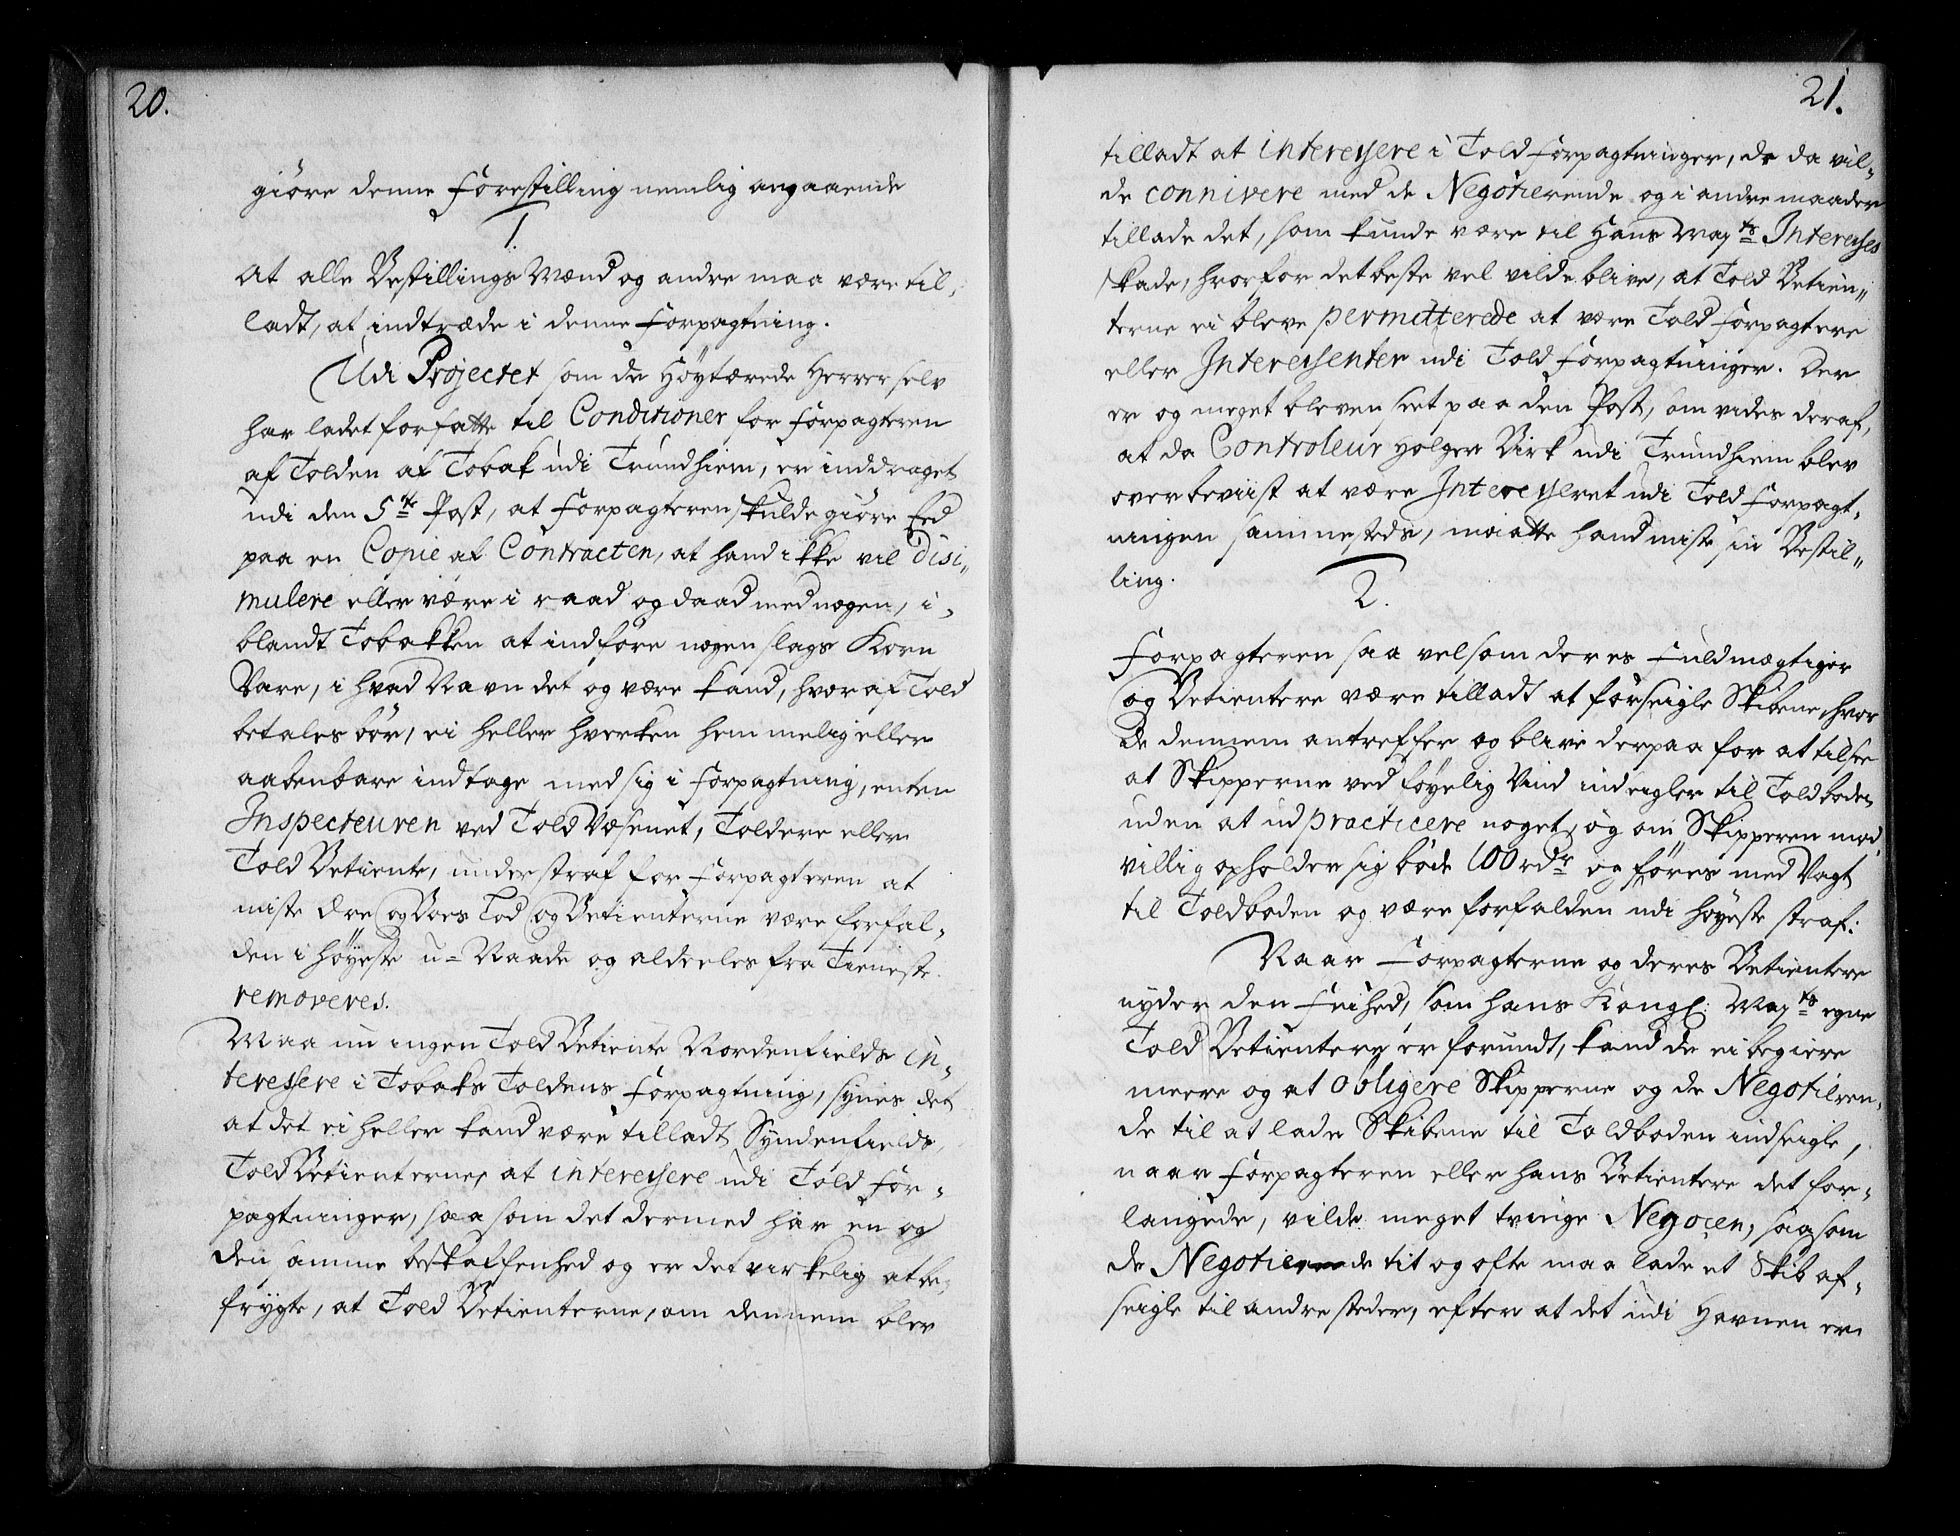 20.
giöre denne Forestilling nemlig angaaende
1.
At alle Bestillings Mænd og andre maa være til„
ladt, at indtræde i denne Forpagtning.
Udi Projectet som de Höytærede Herrer selv
har ladet forfatte til Conditioner for Forpagteren
af Tolden af Tobak udi Trundhiem, er inddraget
udi den 5te Post, at Forpagteren skulde giöre Eed
paa en Copie af Contracten, at hand ikke vil disi„
mulere eller være i raad og daad med nogen, i„
blandt Tobakken at indföre nogen slags Korn
Vare, i hvad Navn det og være kand, hvoraf Told
betales bör, ei heller hverken hemmelig eller
aabenbare indtage med sig i Forpagtning, enten
Inspecteuren ved Told Væsenet, Toldere eller
Told Betiente, under straf for Forpagteren at
miste Ære og Boes Lod og Betienterne være forfal„
den i höyeste u=Naade og aldeeles fra Tieneste
removeres.
Maa nu ingen Told Betiente Nordenfields in„
teressere i Tobaks Toldens Forpagtning, synes det
at det ei heller kand være tilladt Syndenfields,
Told Betienterne, at interessere udi Told For„
pagtninger, saasom det dermed har en og
den samme beskaffenhed og er det virkelig at be„
frygte, at Told Betienterne, om dennem blev
21.
tilladt at interessere i Told Forpagtninger, de da vil„
de connivere med de Negotierende og i andre maader
tillade det, som kunde være til Hans Mayts Interesses
skade, hvorfor det beste vel vilde blive, at Told Betien„
terne ei bleve permitterede at være Told Forpagtere
eller Interessenter udi Told Forpagtninger. Der
er og meget bleven seet paa den Post, som vides deraf,
at da Controleur Holger Birk udi Trundhiem blev
overbeviist at være Interesseret udi Told Forpagt„
ningen sammesteds, maatte hand miste sin Bestil„
ling.
2.
Forpagteren saa vel som deres Fuldmægtiger
og Betientere være tilladt at forseigle Skibene, hvor
de dennem antreffer og blive derpaa for at tilsee
at Skipperne ved föyelig Vind indseigler til Toldboden
uden at udpracticere noget, og om Skipperen mod„
villig opholder sig böde 100 rdr og föres med Vagt
til Toldboden og være forfalden udi höyeste straf:
Naar Forpagterne og deres Betientere
nyder den Frihed, som hans Kongl: Mayts egne
Told Betientere er forundt, kand de ei begiere
meere og at obligere Skipperne og de Negotieren„
de til at lade Skibene til Toldboden indseigle,
naar Forpagteren eller hans Betientere det for„
langede, vilde meget tvinge Negocen, saasom
de Negotierende tit og ofte maa lade et Skib af„
seigle til andre steder, efter at det udi Havnen er